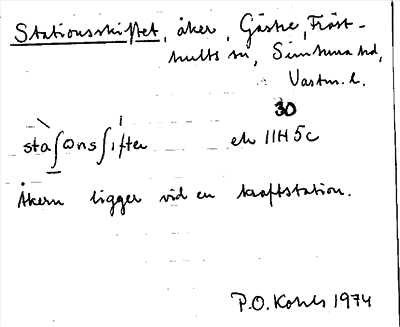 Stationsskiftet, åker, Gåsbe, Fröst-
hults sn, Simtuna hd,
Vastm. l.
30
sta∫ɷns∫ifter ek 11H5c
Åkern ligger vid en kraftstation.
P.O. Kohls 1974